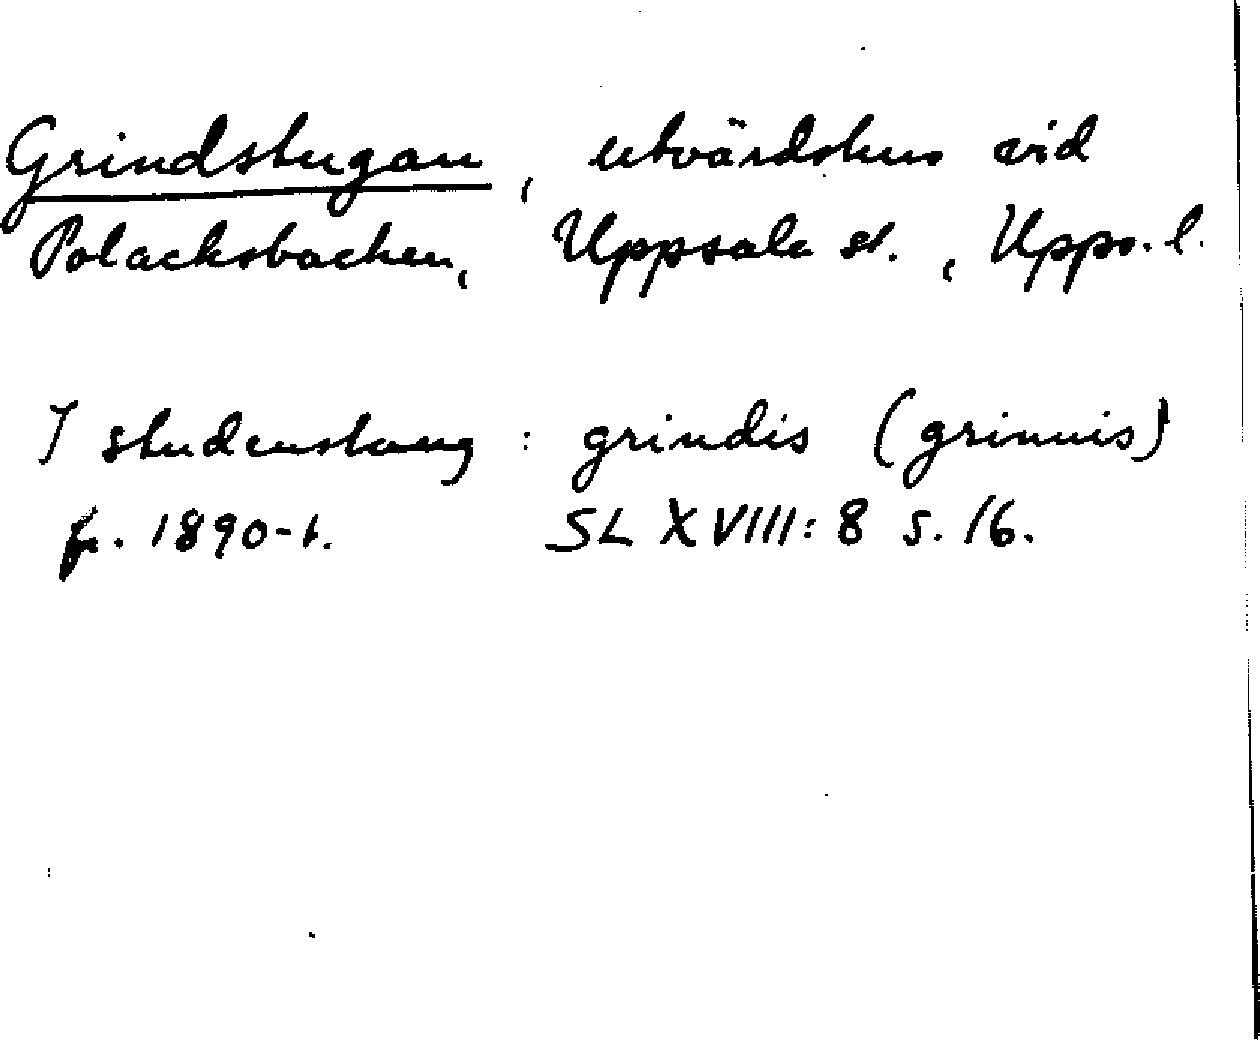 Grindstugan, utvärdshus vid
Polacksbacken, Uppsala st., Upps. l.
I studentslang: grindis (grinnis)
fr. 1890-t. SL XVIII: 8 s. 16.